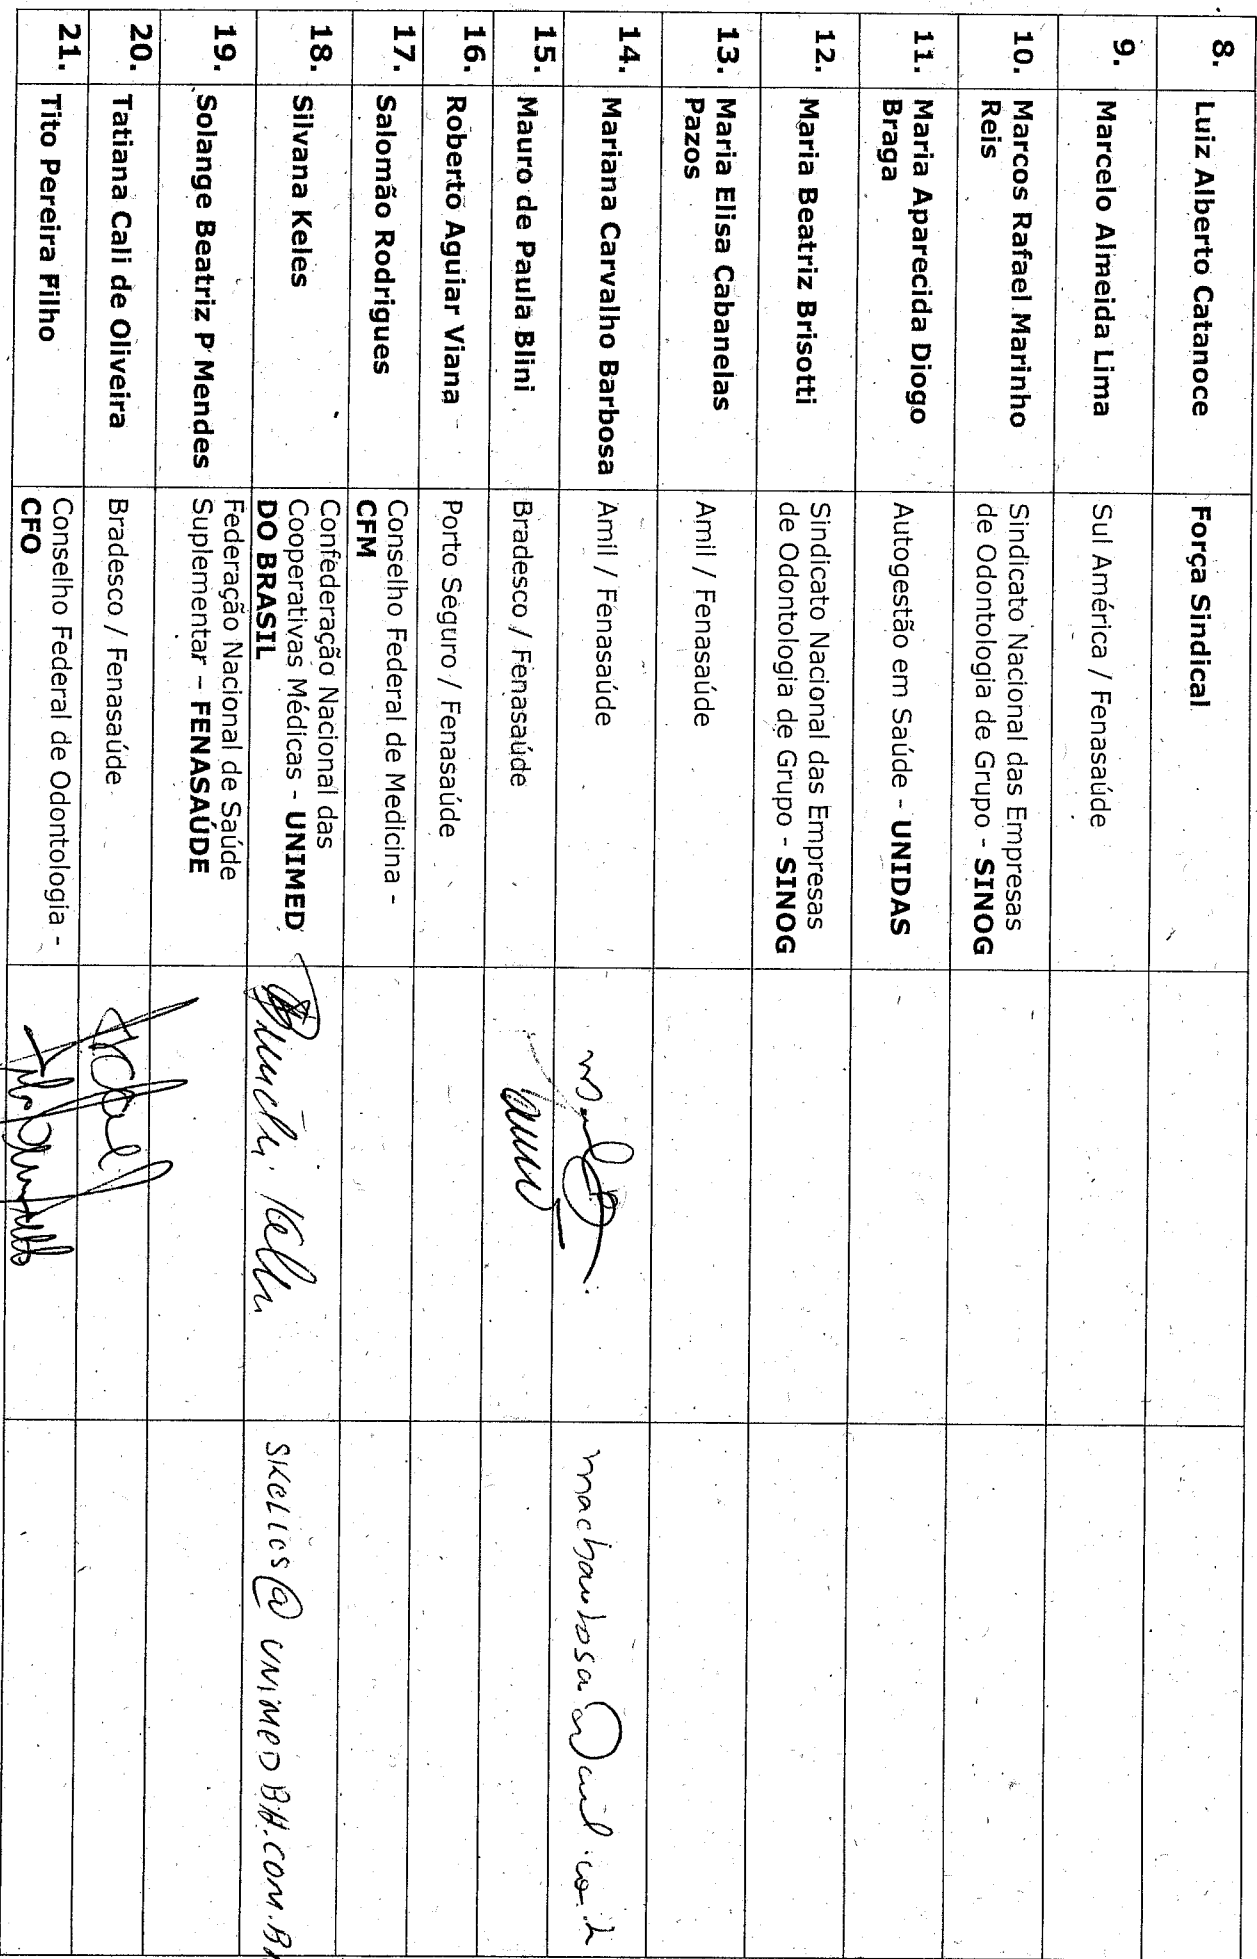 8. Luiz Alberto Catanoce Força Sindical
9. Marcelo Almeida Lima Sul América / Fenasaúde
10. Marcos Rafael Marinho Reis Sindicato Nacional das Empresas
de Odontologia de Grupo - SINOG
11. Maria Aparecida Diogo
Braga Autogestão em Saúde - UNIDAS
12. Maria Beatriz Brisotti Sindicato Nacional das Empresas
de Odontologia de Grupo - SINOG
13. Maria Elisa Cabanelas
Pazos Amil / Fenasaúde
14. Mariana Carvalho Barbosa Amil / Fenasaúde
15. Mauro de Paula Blini Bradesco / Fenasaúde
16. Roberto Aguiar Viana Porto Seguro / Fenasaúde
17. Salomão Rodrigues Conselho Federal de Medicina -
CFM
18. Silvana Keles Confederação Nacional das
Cooperativas Médicas - UNIMED
DO BRASIL
19. Solange Beatriz P Mendes Federação Nacional de Saúde
Suplementar – FENASAÚDE
20. Tatiana Cali de Oliveira Bradesco / Fenasaúde
21. Tito Pereira Filho Conselho Federal de Odontologia -
CFO